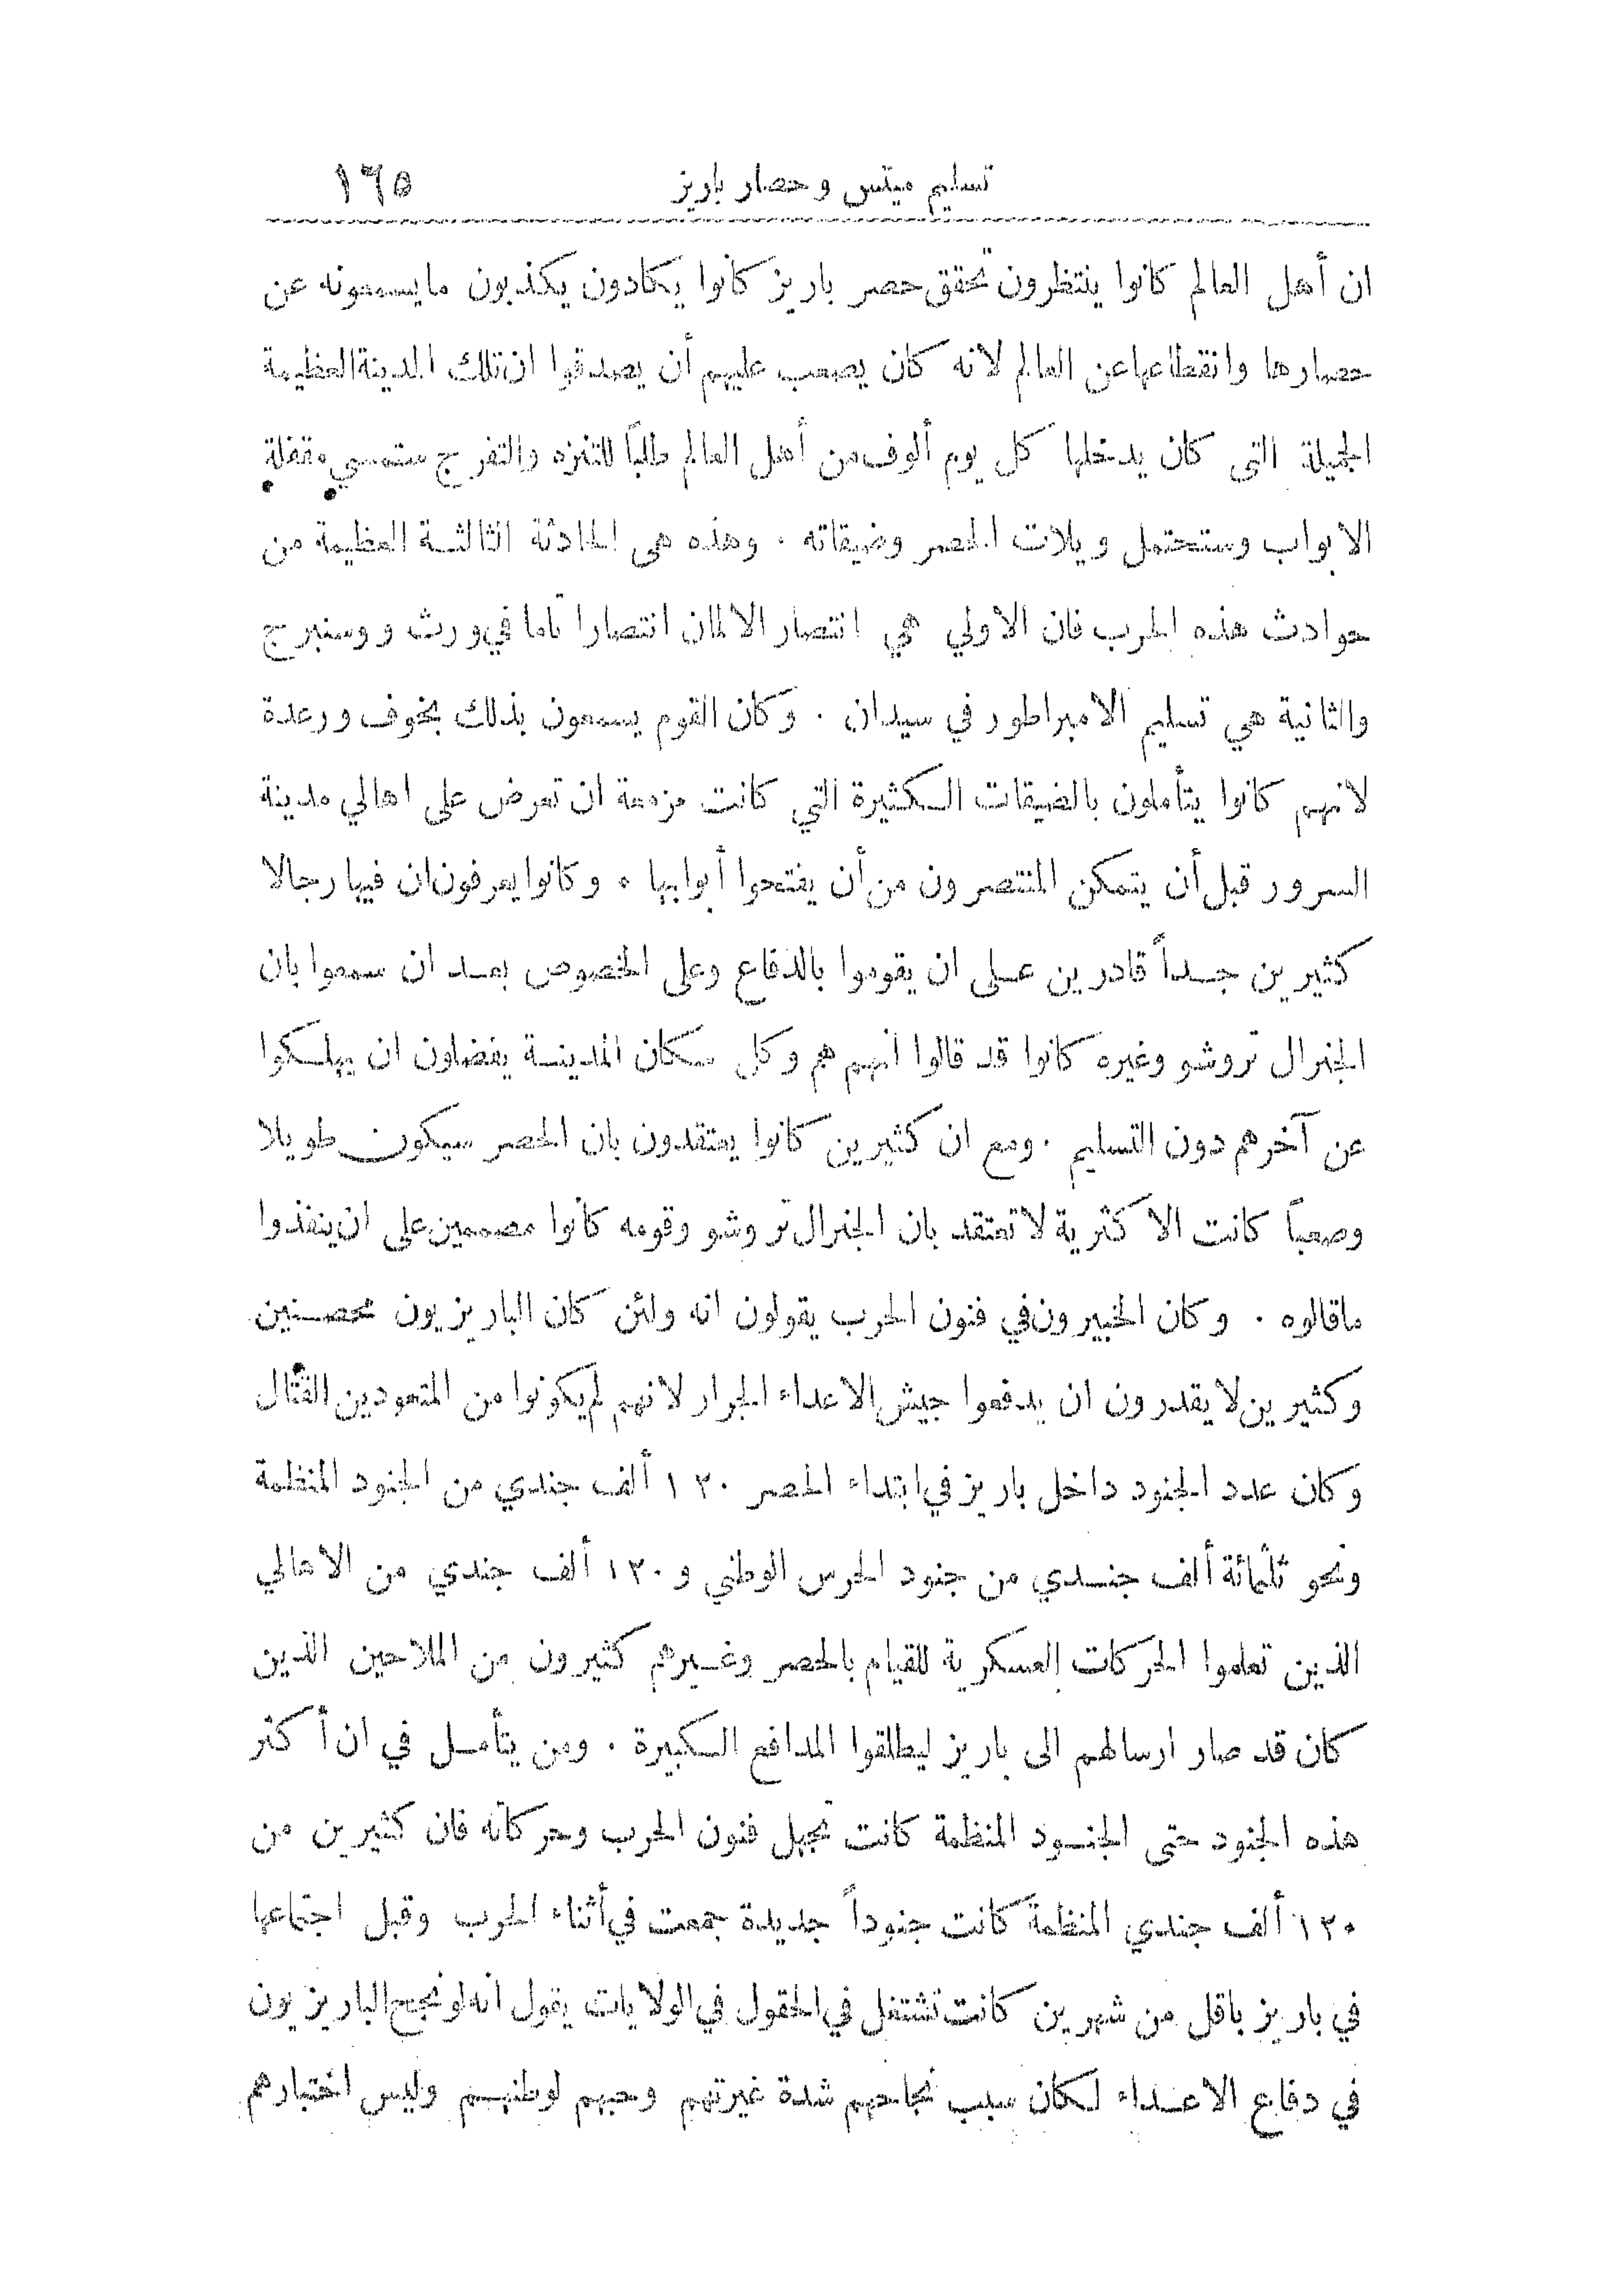 تسليم ميتس وحصار باريز ١٦٥
ان أهل العالم كانوا ينتظرون تحقق حصر باريز كانوا يكادون يكذبون مايسمعونه عن
حصارها وانقطاعها عن العالم لانه كان يصعب عليهم أن يصدقوا ان تلك المدينة العظيمة
الجميلة التى كان يدخلها كل يوم ألوف من أهل العالم طلباً للتنزه والتفرج ستمسي مقفلة
الابواب وستحتمل ويلات الحصر وضيقاته . وهذه هى الحادثة الثالثة العظيمة من
حوادث هذه الحرب فان الاولي هي انتصار الالمان انتصارا تاما في ورث ووسنبرج
والثانية هي تسليم الامبراطور في سيدان . وكان القوم يسمعون بذلك بخوف ورعدة
لانهم كانوا يتأملون بالضيقات الكثيرة التي كانت مزمعة ان تعرض على اهالي مدينة
السرور قبل أن يتمكن المنتصرون من أن يفتحوا أبوابها . وكانوا يعرفون ان فيها رجالا
كثيرين جداً قادرين على ان يقوموا بالدفاع وعلى الخصوص بعد ان سمعوا بان
الجنرال تروشو وغيره كانوا قد قالوا انهم هم وكل سكان المدينة يفضلون ان يهلكوا
عن آخرهم دون التسليم . ومع ان كثيرين كانوا يعتقدون بان الحصر سيكون طويلا
وصعباً كانت الاكثرية لا تعتقد بان الجنرال تروشو وقومه كانوا مصممين على ان ينفذوا
ماقالوه . وكان الخبيرون في فنون الحرب يقولون انه ولئن كان الباريزيون محصنين
وكثيرين لا يقدرون ان يدفعوا جيش الاعداء الجرار لانهم لم يكونوا من المتعودين القتال
وكان عدد الجنود داخل باريز في ابتداء الحصر ١٢٠ ألف جندي من الجنود المنظمة
ونحو ثلثمائة ألف جندي من جنود الحرس الوطني و ١٢٠ ألف جندي من الاهالي
الذين تعلموا الحركات العسكرية للقيام بالحصر وغيرهم كثيرون من الملاحين الذين
كان قد صار ارسالهم الى باريز ليطلقوا المدافع الكبيرة . ومن يتأمل في ان أكثر
هذه الجنود حتى الجنود المنظمة كانت تجهل فنون الحرب وحركاته فان كثيرين من
١٢٠ ألف جندي المنظمة كانت جنوداً جديدة جمعت في أثناء الحرب وقبل اجتماعها
في باريز باقل من شهرين كانت تشتغل في الحقول في الولايات يقول انه لو نجح الباريزيون
في دفاع الاعداء لكان سبب نجاحهم شدة غيرتهم وحبهم لوطنهم وليس اختبارهم